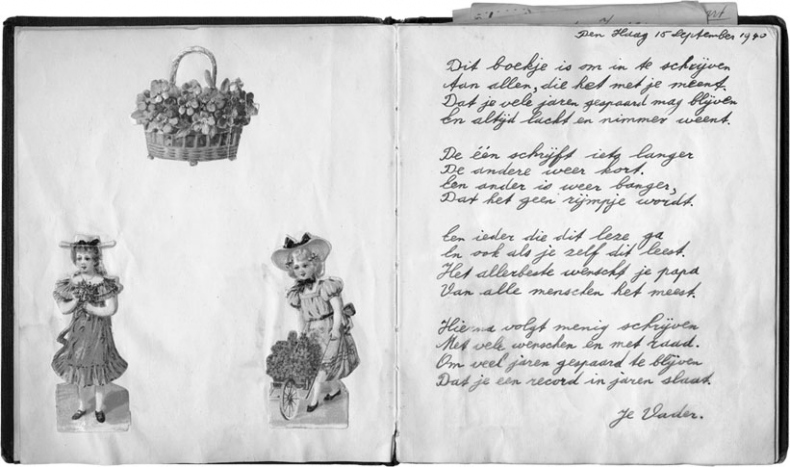 Den Haag 15 September 1940
Dit boekje is om in te schrijven
Aan allen, die het met je meent.
Dat je vele jaren gespaard mag blijven
En altijd lacht en nimmer weent.
De één schrijft iets langer
De andere weer kort.
Een ander is weer banger,
Dat het geen rijmpje wordt.
Een ieder die dit leze ga
En ook als je zelf dit leest.
Het allerbeste wenscht je papa
Van alle menschen het meest.
Hierna volgt menig schrijven
Met vele wenschen en met raad.
Om veel jaren gespaard te blijven
Dat je een record in jaren slaat.
Je Vader.